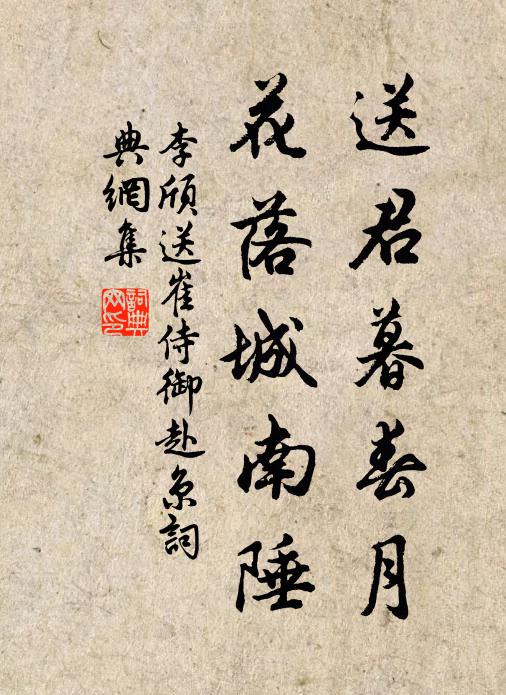 送君暮春月
花落城南陲
李頎送崔侍御赴京詞
典網集
詞典
網印